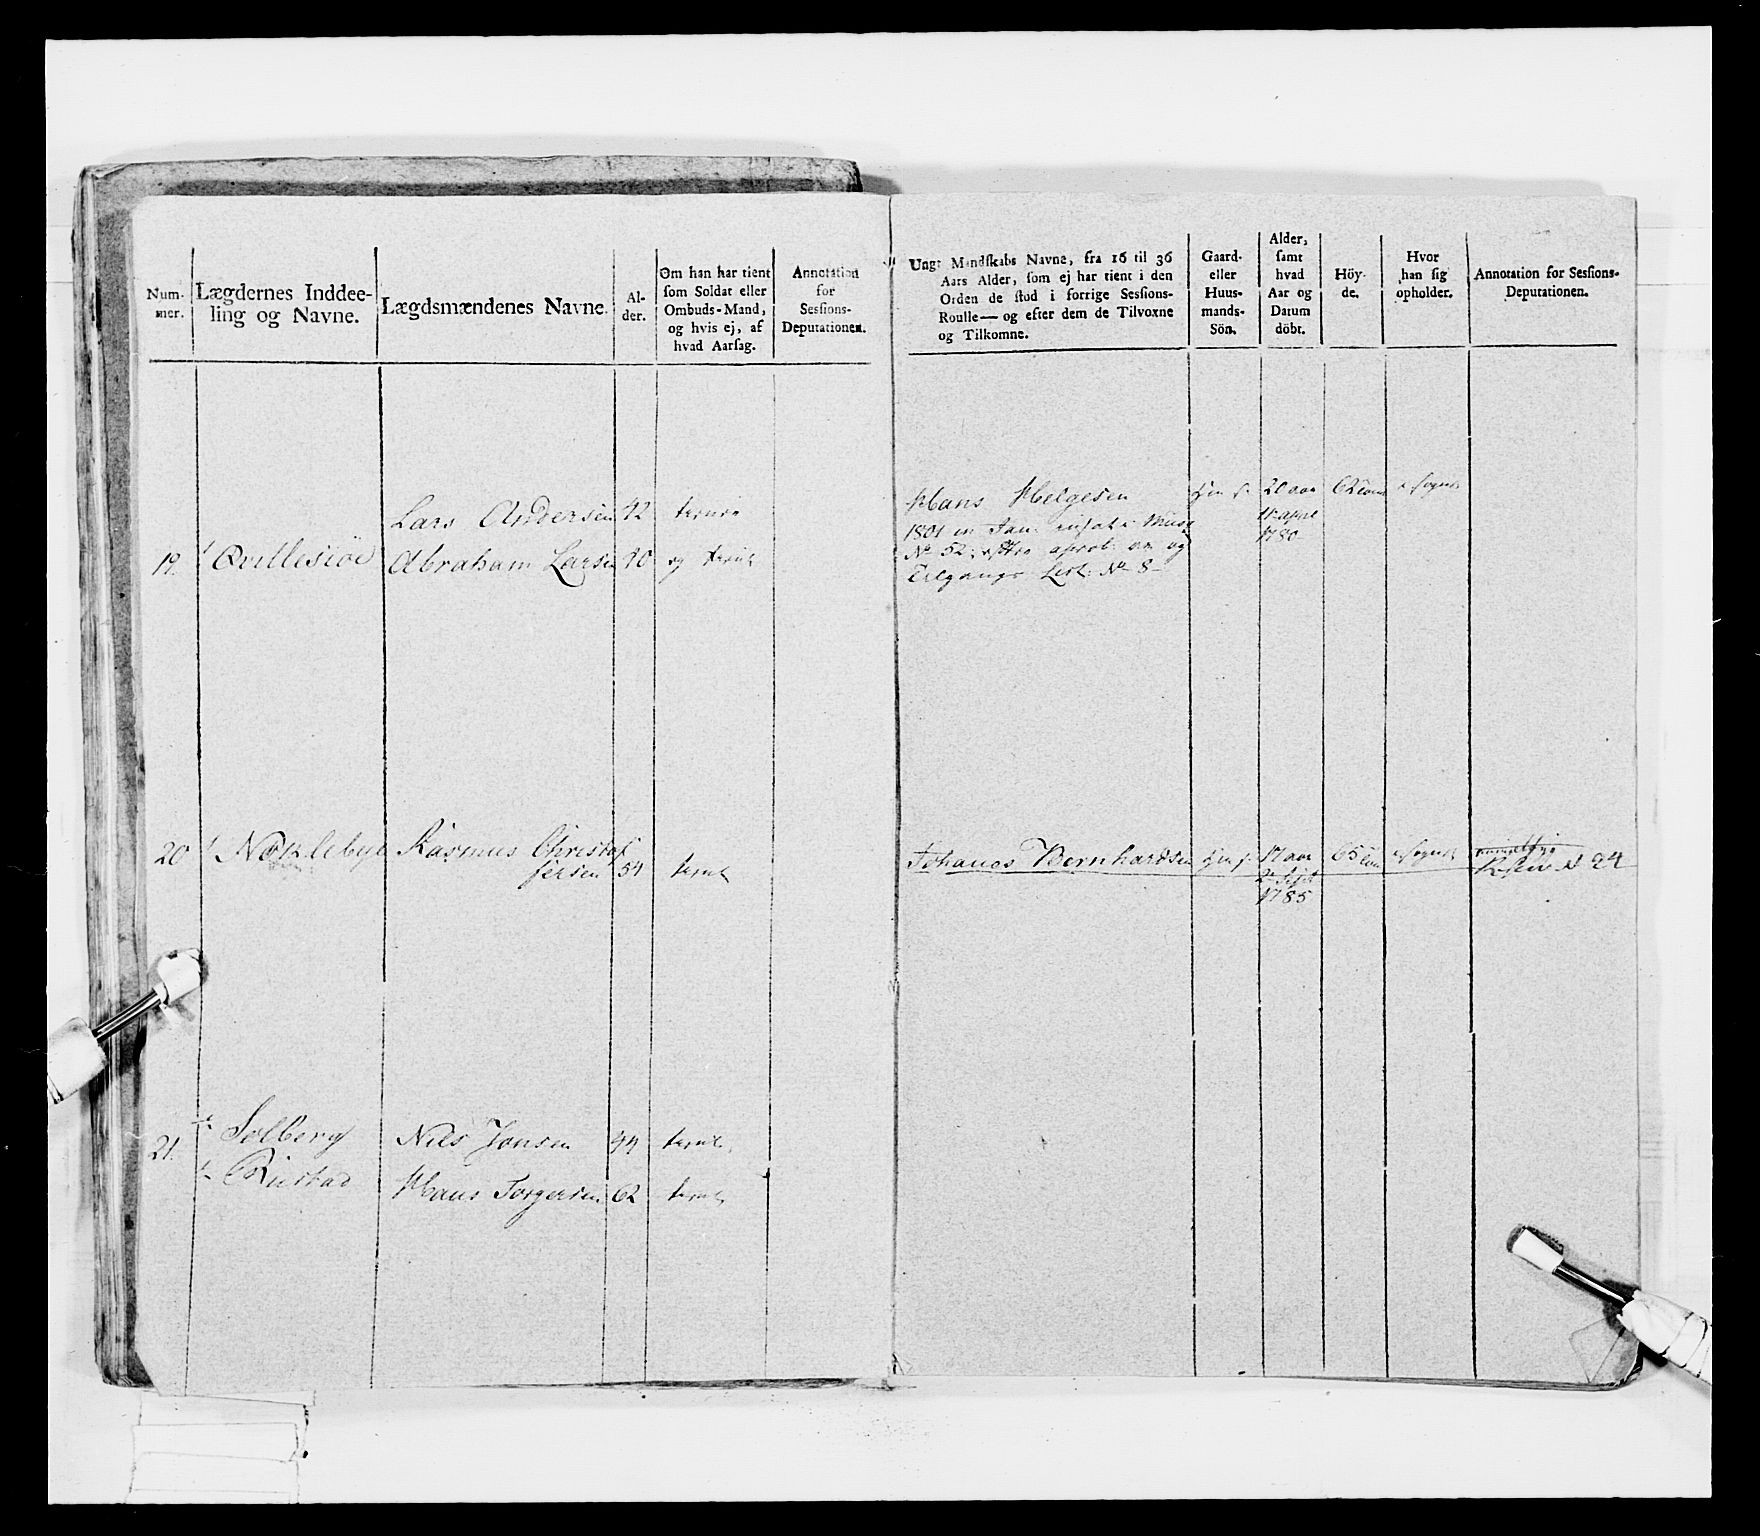 Num-
mer.
Lægdernes Inddee-
ling og Navne.
Lægdsmændenes Navne.
Al-
der.
Om han har tient
som Soldat eller
Ombuds-Mand,
og hvis ej, af
hvad Aarsag.
Annotation
for
Sessions-
Deputationen.
19.
1 Qvillesiöe
Lars Andersen 42
Abraham Larsen 40
og tient
20
1 Nöklebye
Rasmus Christof
fersen 54 tient
21.
Solberg
Nils Jonsen 44 tient
Riustad
Hans Torgersen 62 tient
Ungt Mandskabs Navne, fra 16 til 36
Aars Alder, som ej har tient i den
Orden de stod i forrige Sessions-
Roulle— og efter dem de Tilvoxne
og Tilkomne.
Gaard-
eller
Huus-
mands-
Sön.
Alder,
samt
hvad
Aar og
Datum
döbt.
Höy-
de.
Hvor
han sig
opholder.
Annotation for Sessions-
Deputationen.
Hans Helgesen 20 aar 62 Tom i Sognet
1801 Jan:
11 April
1780
No 52
Tilgangs List: No 8
Johanes Bernhardsen 17 aar 65 Tom i Sognet
No 24
2 Sept
1785